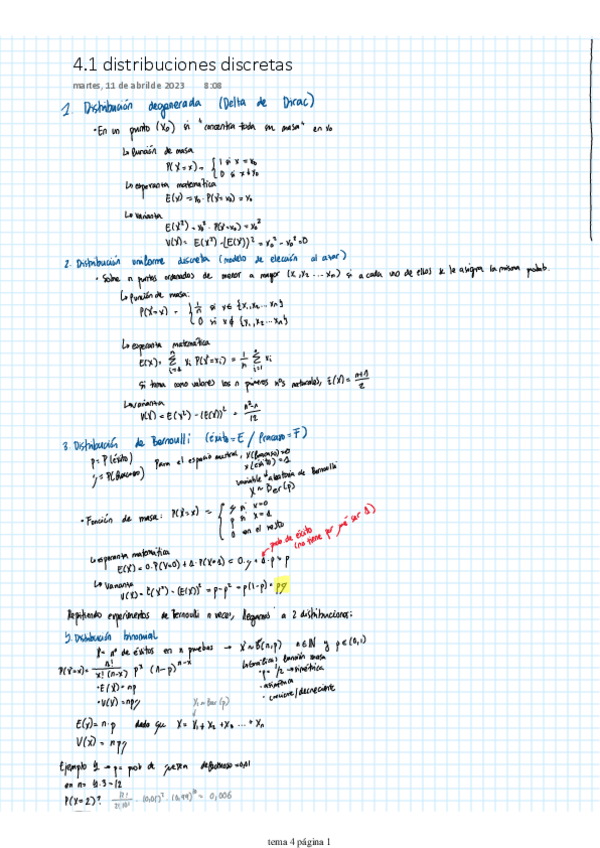 4.1 distribuciones discretas
martes, 11 de abril de 2023 8:08
1. Distribución degenerada (Delta de Dirac)
• En un punto (x₀) si "concentra toda su masa" en x₀
↳ función de masa
P(X=x) = { 1 si x = x₀
0 si x ≠ x₀
↳ esperanza matemática
E(X) = x₀ · P(X=x₀) = x₀
↳ varianza
E(X²) = x₀² · P(X=x₀) = x₀²
V(X) = E(X²) - (E(X))² = x₀² - x₀² = 0
2. Distribución uniforme discreta (modelo de elección al azar)
• Sobre n puntos ordenados de menor a mayor (x₁, x₂ ... xₙ) si a cada uno de ellos se le asigna la misma probab.
↳ función de masa:
P(X=x) = { 1/n si x ∈ {x₁, x₂ ... xₙ}
0 si x ∉ {x₁, x₂ ... xₙ}
↳ esperanza matemática
E(X) = Σ xᵢ P(X=xᵢ) = 1/n Σ xᵢ
si toma como valores los n primeros nºs naturales, E(X) = n+1/2
↳ varianza
V(X) = E(X²) - (E(X))² =
3. Distribución de Bernoulli (éxito = E / Fracaso = F)
p = P(éxito)
q = P(fracaso)
Para el espacio muestral, X(fracaso)=0
X(éxito)=1
variable aleatoria de Bernoulli
X ~ Ber(p)
• Función de masa: P(X=x) = { q si x=0
p si x=1
0 en el resto
prob de éxito
(no tiene por qué ser 1)
↳ esperanza matemática
E(X) = 0·P(X=0) + 1·P(X=1) = 0·q + 1·p = p
↳ Varianza
V(X) = E(X²) - (E(X))² = p - p² = p(1-p) = pq
Repitiendo experimentos de Bernoulli n veces, llegamos a 2 distribuciones:
Distribución binomial
nº de éxitos en n pruebas → X ~ B(n,p) n ∈ ℕ y p ∈ (0,1)
P(X=x) = n!/x!(n-x)! pˣ (1-p)ⁿ⁻ˣ
función masa
• p = 1/2 → simétrica
• asimétrica
• creciente/decreciente
• E(X) = np
• V(X) = npq
Xᵢ ~ Ber(p)
E(X) = n·p dado que X = X₁ + X₂ + X₃ ... + Xₙ
V(X) = npq
Ejemplo 1 → p = prob de defectuoso = 0,01
P(X=2)? · (0,01)² · (0,99)¹⁰ = 0,006
tema 4 página 1